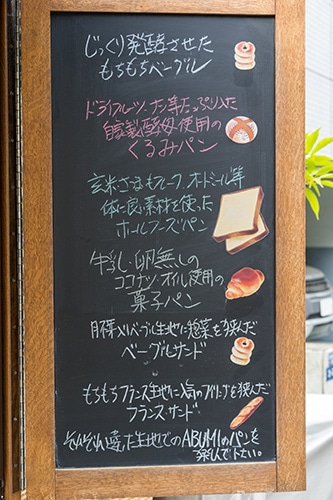 じっくり発酵させた
もちもちベーグル
ドライフルーツ、ナッツ等たっぷり入った
自家製酵母使用の
くるみパン
玄米、さつまいも
体に良い素材を使った
ホールフーズパン
牛乳・卵無しの
ココナツオイル使用の
菓子パン
ベーグル生地に惣菜を挟んだ
ベーグルサンド
もちもちフランス生地に人気の を挟んだ
フランスサンド
それぞれ違った生地でのABUMIのパンを
楽しんで下さい。